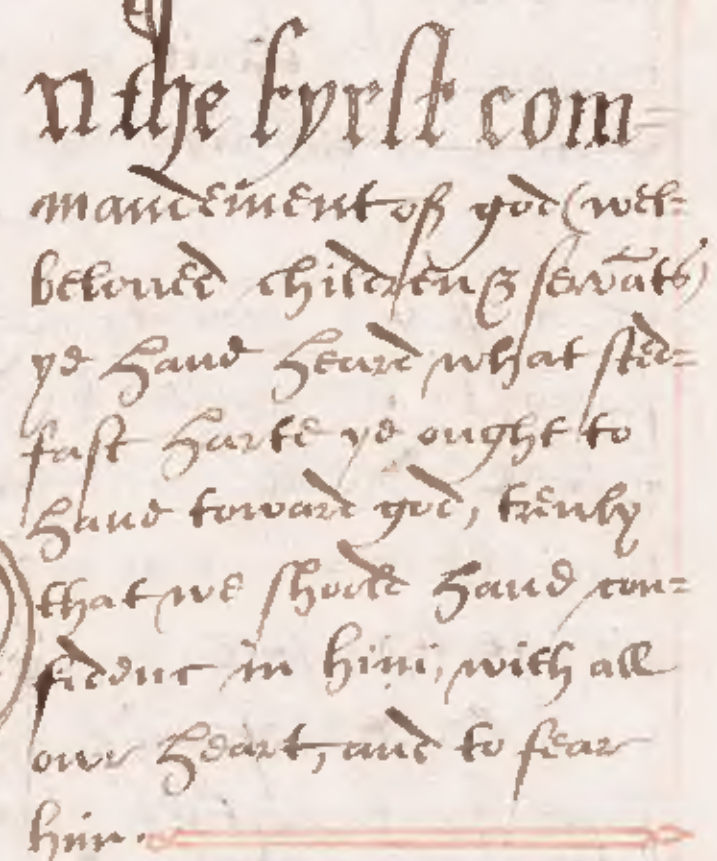 n the fyrst com=
maudement of god (wel=
beloued children & servāts)
ye haue heard what sted=
fast harte ye ought to
haue toward god, treuly
that we shold haue con=
fidenc in him, with all
owr heart, and to fear
him.